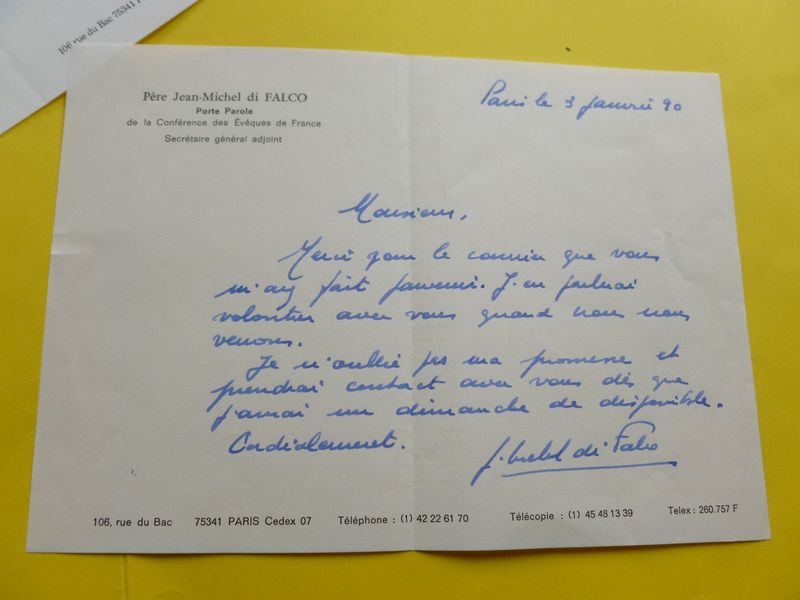 106 rue du Bac 75341
Père Jean-Michel di FALCO
Porte Parole
de la Conférence des Évêques de France
Secrétaire général adjoint
Paris le 3 janvier 90
Monsieur,
Merci pour le courrier que vous
m'avez fait parvenir. J'en parlerai
volontier avec vous quand nous nous
verrons.
Je n'oublie pas ma promesse et
prendrai contact avec vous dès que
j'aurai un dimanche de disponible.
Cordialement.
J. Michel di Falco
106, rue du Bac 75341 PARIS Cedex 07 Téléphone : (1) 42 22 61 70 Télécopie : (1) 45 48 13 39 Telex : 260.757 F